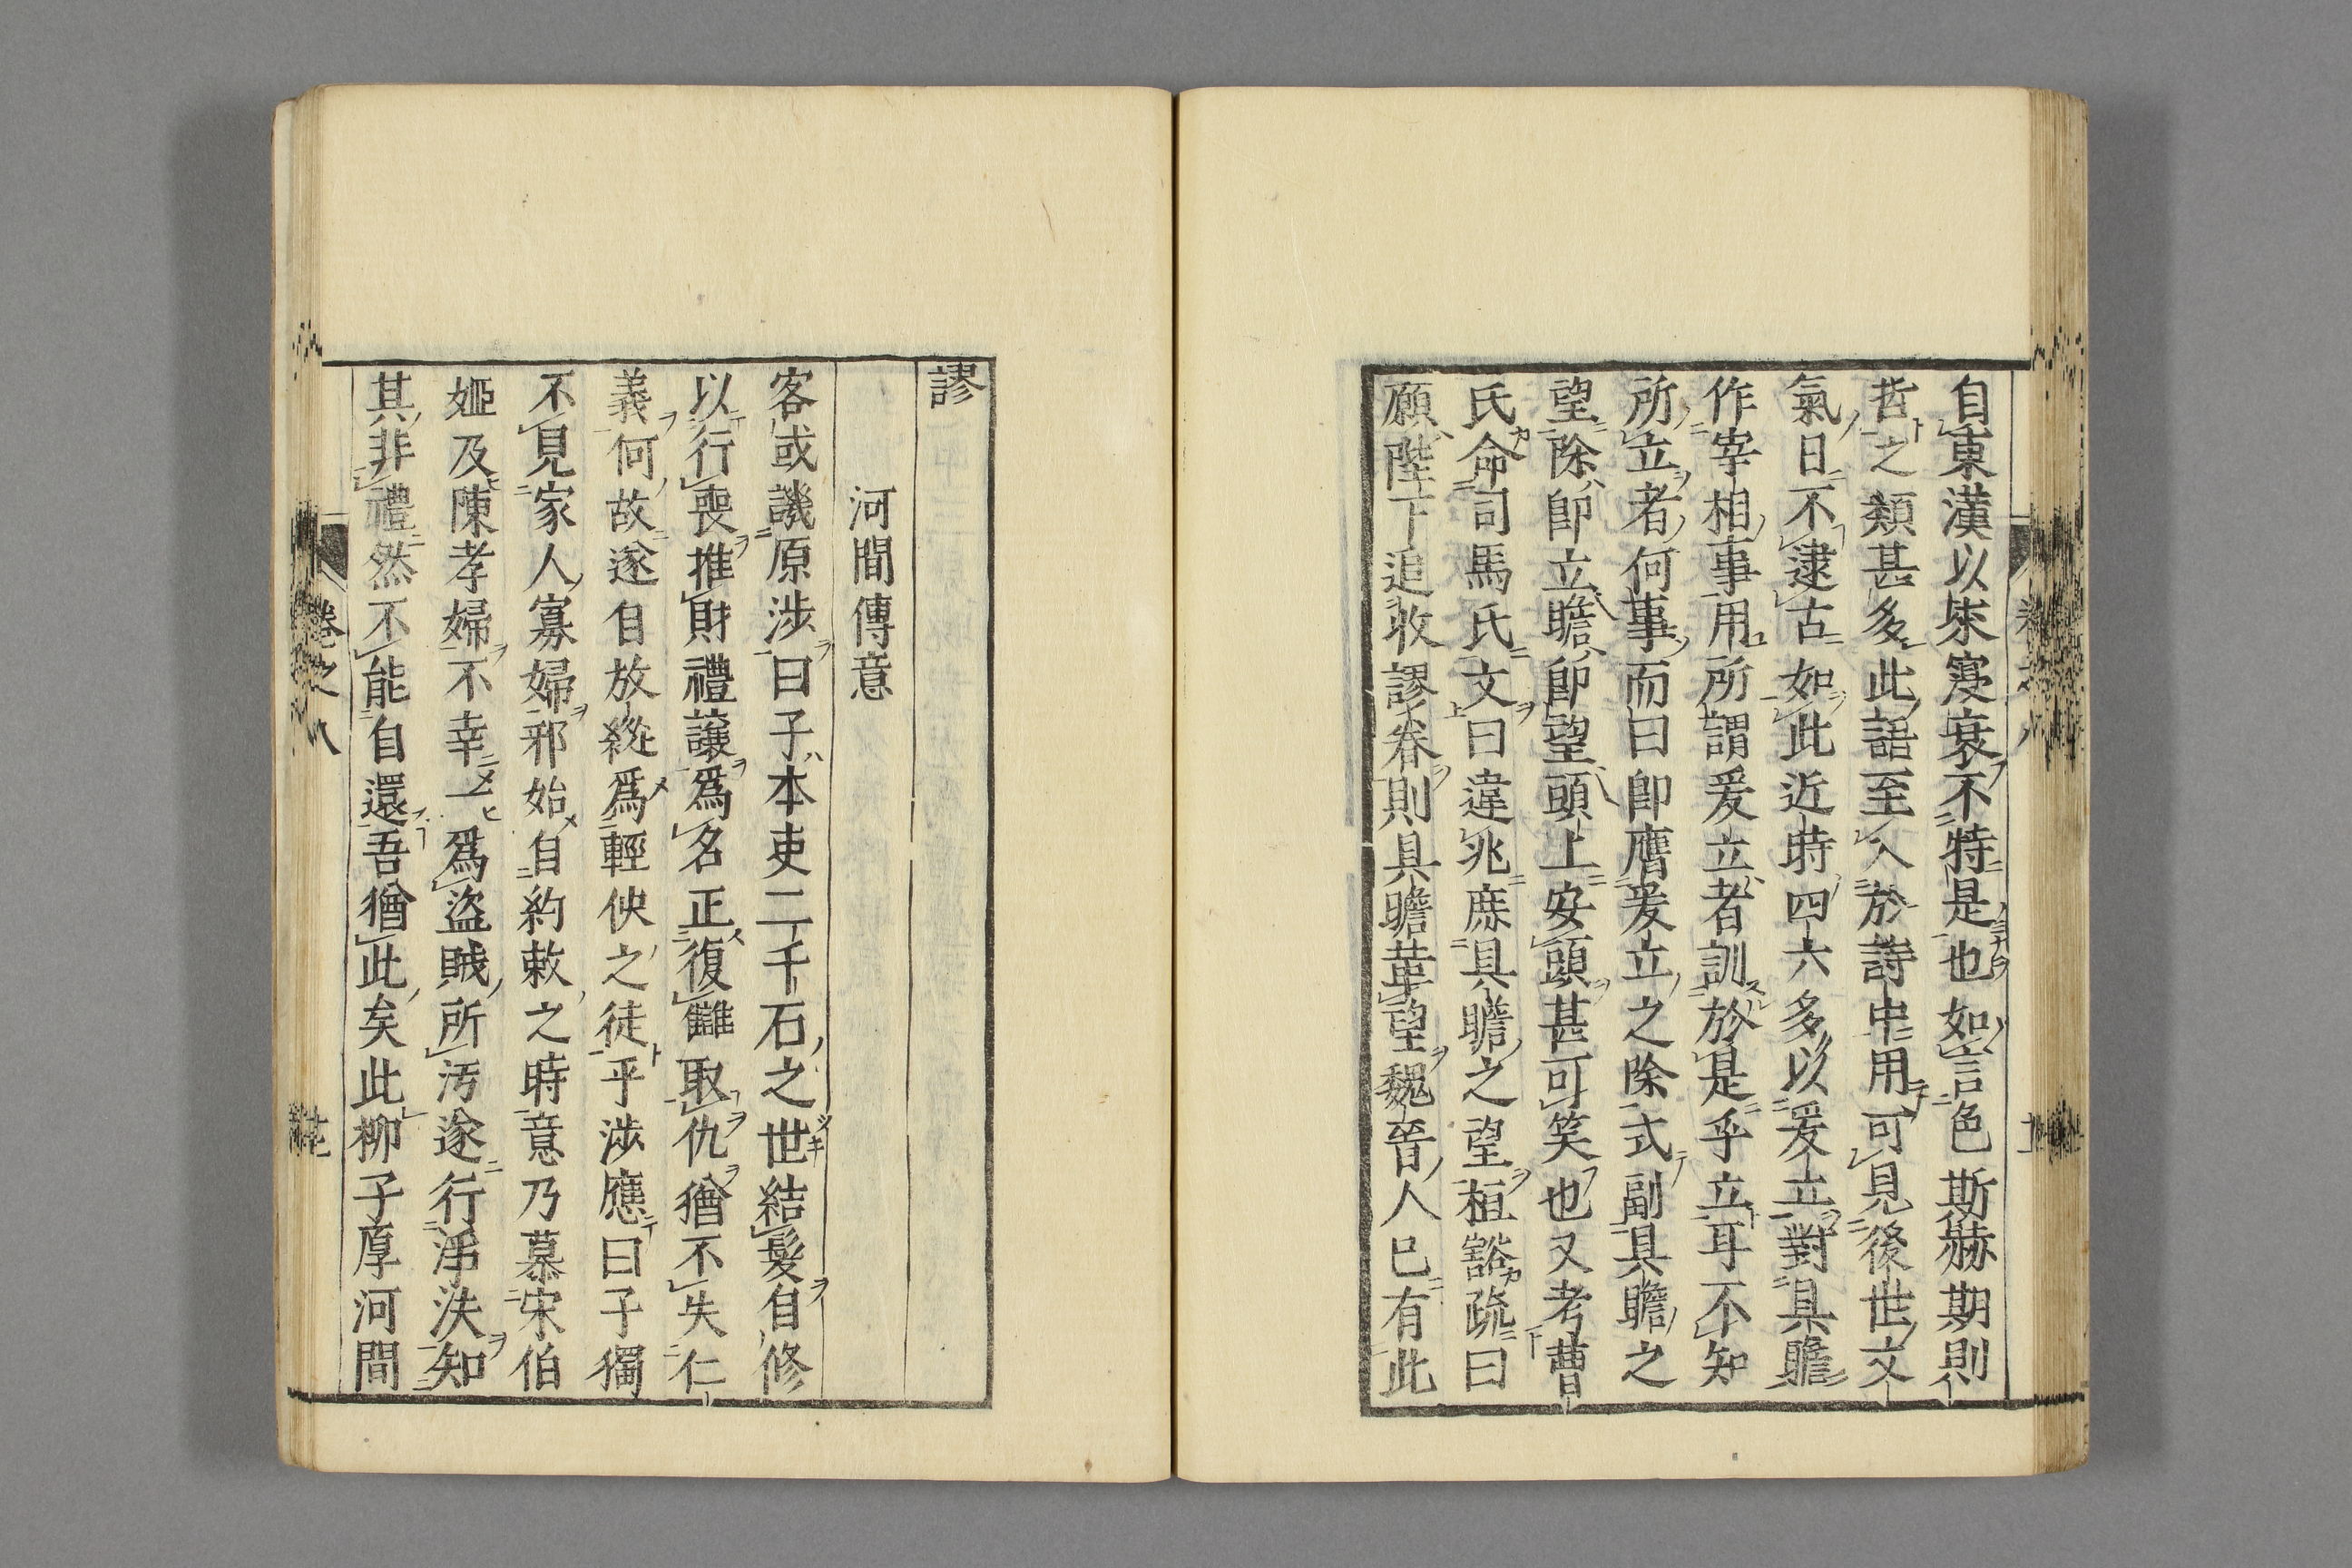 自東漢以來寖衰不特是也如言色斯赫期則
哲之類甚多此語至入於詩中用可見後世文
氣日不逮古如此近時四六多以爰立對具瞻
作宰相事用所謂爰立者訓於是乎立耳不知
所立者何事而曰即膺爰立之除式副具瞻之
望除即立瞻即望頭上安頭甚可笑也又考曹
氏命司馬氏文曰違兆庶具瞻之望植豁疏曰
願陛下追收謬眷則具瞻革望魏晉人已有此
謬
河間傳意
客或譏原涉曰子本吏二千石之世結髮自修
以行喪推財禮讓爲名正復讎取仇猶不失仁
義何故遂自放縱爲輕俠之徒乎涉應曰子獨
不見家人寡婦邪始自約敕之時意乃慕宋伯
姬及陳孝婦不幸一爲盜賊所汚遂行淫泆知
其非禮然不能自還吾猶此矣此柳子厚河間
卷之八